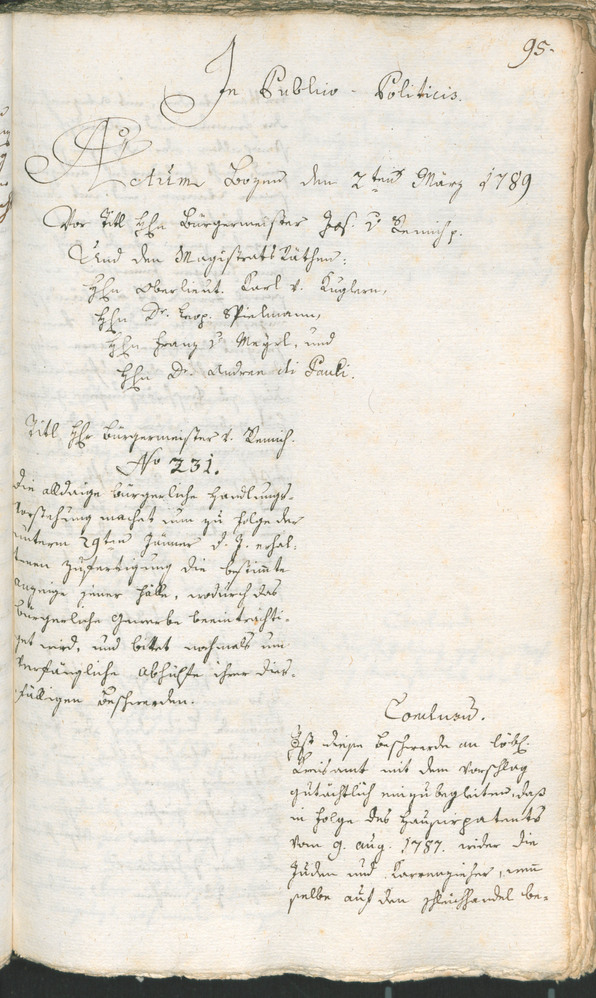 95.
In Publico-Politicis.
Actum Bozen den 2ten März 1789
Vor Titl Hhn Bürgermeister Jos. v Remich p.
Und den Magistrats Räthen:
Hhn Oberlieut. Karl v. Kuglern,
Hhn Dr. Leop. Spielmann,
Hhn Franz v. Mayrl, und
Hhn Dr. Andree di Pauli.
Titl Hhr Bürgermeister v. Remich.
No 231.
Die alldasige bürgerliche Handlungs-
Vorstehung machet nun zu folge der
unterm 29ten Jänner d. J. erhal-
tenen Zufertigung die bestimte
Anzeige jener Fälle, wodurch das
bürgerliche Gewerbe beeinträchti-
get wird, und bittet nochmals um
verfängliche Abhülfe ihrer dies-
fälligen Beschwerden.
Conclusum.
Ist diese Beschwerde an löbl.
Kreisamt mit dem Vorschlag
gutächtlich einzubegleiten, daß
in Folge des Hausirpatents
vom 9. Aug. 1787. wider die
Juden und Karrenzieher, wenn
selbe auf den schleichhandel be-